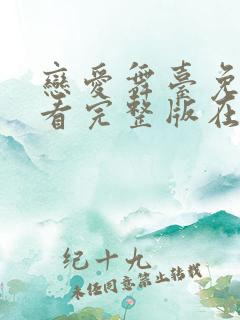 戀愛舞臺免
看完整版在
纪十九
未经同意禁止转载